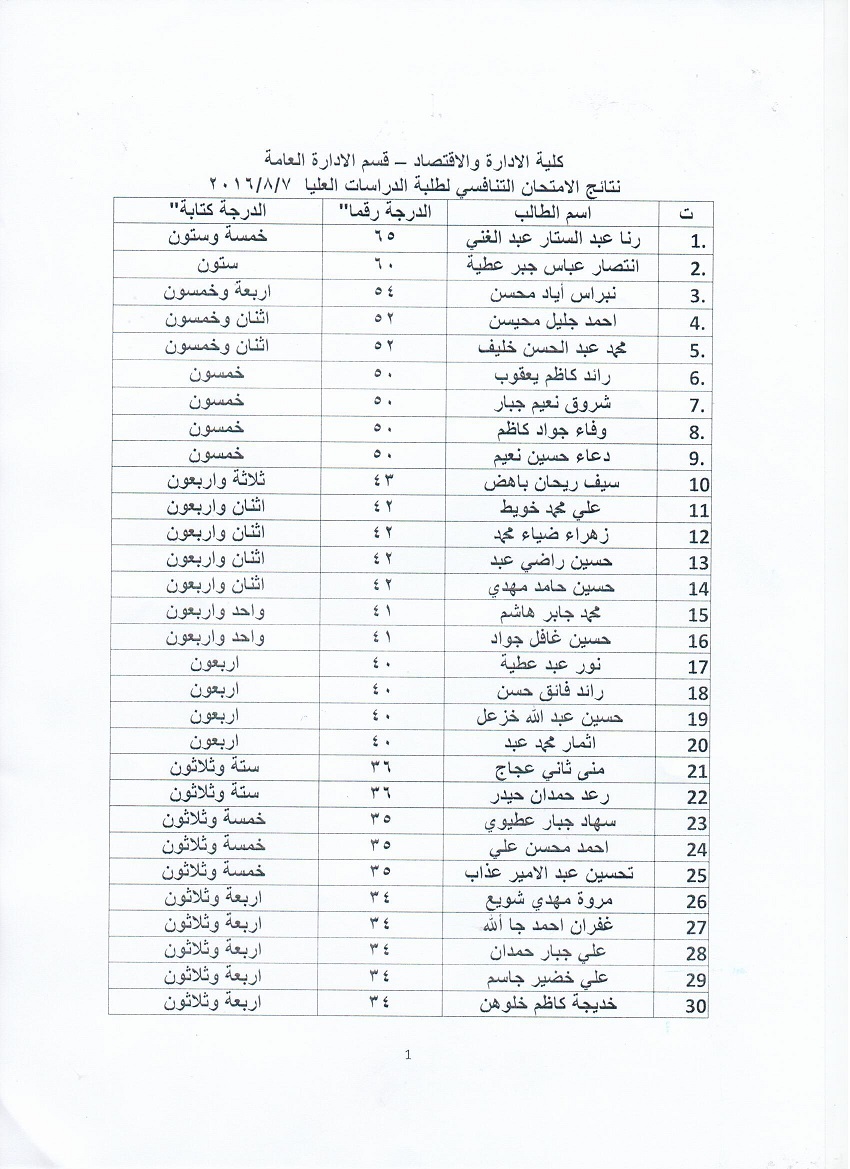 كلية الادارة والاقتصاد – قسم الادارة العامة
نتائج الامتحان التنافسي لطلبة الدراسات العليا ٢٠١٦/٨/٧
ت اسم الطالب الدرجة رقما" الدرجة كتابة"
1. رنا عبد الستار عبد الغني ٦٥ خمسة وستون
2. انتصار عباس جبر عطية ٦٠ ستون
3. نبراس أياد محسن ٥٤ اربعة وخمسون
4. احمد جليل محيسن ٥٢ اثنان وخمسون
5. محمد عبد الحسن خليف ٥٢ اثنان وخمسون
6. رائد كاظم يعقوب ٥٠ خمسون
7. شروق نعيم جبار ٥٠ خمسون
8. وفاء جواد كاظم ٥٠ خمسون
9. دعاء حسين نعيم ٥٠ خمسون
10 سيف ريحان باهض ٤٣ ثلاثة واربعون
11 علي محمد خويط ٤٢ اثنان واربعون
12 زهراء ضياء محمد ٤٢ اثنان واربعون
13 حسين راضي عبد ٤٢ اثنان واربعون
14 حسين حامد مهدي ٤٢ اثنان واربعون
15 محمد جابر هاشم ٤١ واحد واربعون
16 حسين غافل جواد ٤١ واحد واربعون
17 نور عبد عطية ٤٠ اربعون
18 رائد فائق حسن ٤٠ اربعون
19 حسين عبد الله خزعل ٤٠ اربعون
20 اثمار محمد عبد ٤٠ اربعون
21 منى ثاني عجاج ٣٦ ستة وثلاثون
22 رعد حمدان حيدر ٣٦ ستة وثلاثون
23 سهاد جبار عطيوي ٣٥ خمسة وثلاثون
24 احمد محسن علي ٣٥ خمسة وثلاثون
25 تحسين عبد الامير عذاب ٣٥ خمسة وثلاثون
26 مروة مهدي شويع ٣٤ اربعة وثلاثون
27 غفران احمد جا ألله ٣٤ اربعة وثلاثون
28 علي جبار حمدان ٣٤ اربعة وثلاثون
29 علي خضير جاسم ٣٤ اربعة وثلاثون
30 خديجة كاظم خلوهن ٣٤ اربعة وثلاثون
1